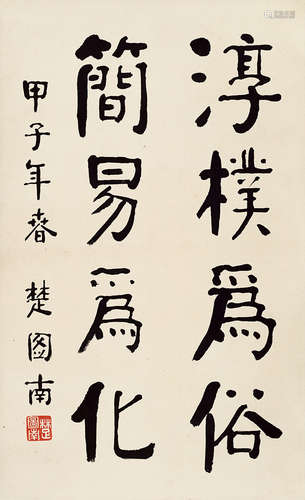 淳樸爲俗
簡易爲化
甲子年春
楚圖南